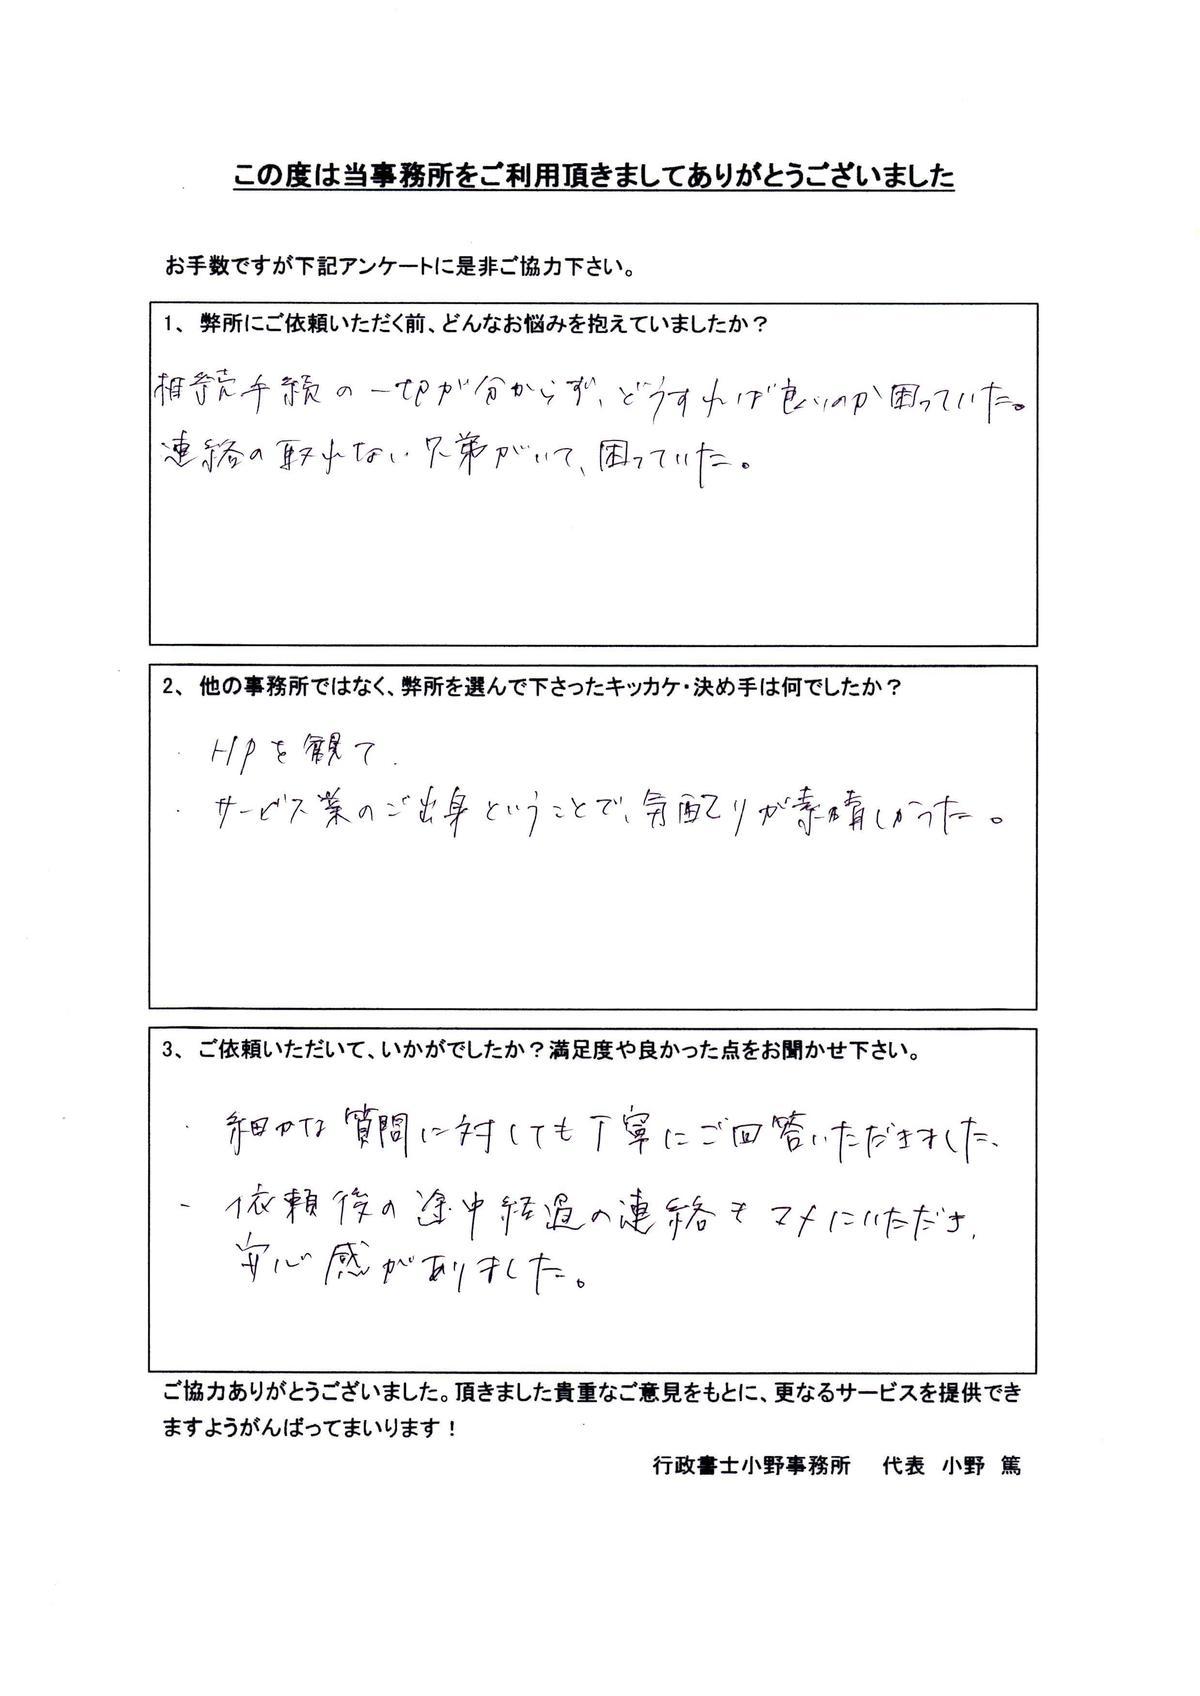 この度は当事務所をご利用頂きましてありがとうございました
お手数ですが下記アンケートに是非ご協力下さい。
1、 弊所にご依頼いただく前、どんなお悩みを抱えていましたか？
相続手続の一切が分からず、どうすれば良いのか困っていた。
連絡の取れない兄弟がいて、困っていた。
2、 他の事務所ではなく、弊所を選んで下さったキッカケ・決め手は何でしたか？
・ HPを観て.
・ サービス業のご出身ということで、気配りが素晴しかった。
3、 ご依頼いただいて、いかがでしたか？満足度や良かった点をお聞かせ下さい。
・ 細かな質問に対しても丁寧にご回答いただきました、
- 依頼後の途中経過の連絡もマメにいただき、
安心感がありました。
ご協力ありがとうございました。頂きました貴重なご意見をもとに、更なるサービスを提供でき
ますようがんばってまいります！
行政書士小野事務所 代表 小野 篤